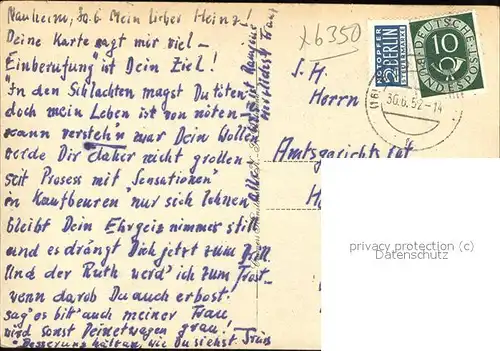 Nauheim, 30.6 Mein lieber Heinz!
Deine Karte sagt mir viel –
"Einberufung" ist Dein Ziel!
"In den Schlachten magst Du töten,
doch mein Leben ist von nöten"
wann verstehn zwar Dein Wollen
werde Dir daher nicht grollen
seit Prozess mit "Sensationen"
in Kaufbeuren nur sich lohnen
bleibt Dein Ehrgeiz nimmer still
und es drängt Dich jetzt zum Drill.
Und der Ruth werd' ich zum Trost –
wenn darob Du auch erbost.
sag' es bitt' auch meiner Frau
wird sonst Deinetwegen grau!
wie Du siehst
x6350
NOTOPFER
2 BERLIN
STEUERMARKE
DEUTSCHE
BUNDESPOST
10
30.6.52-14
S. H.
Herrn
Amtsgerichtsrat
H
privacy protection (c)
Datenschutz